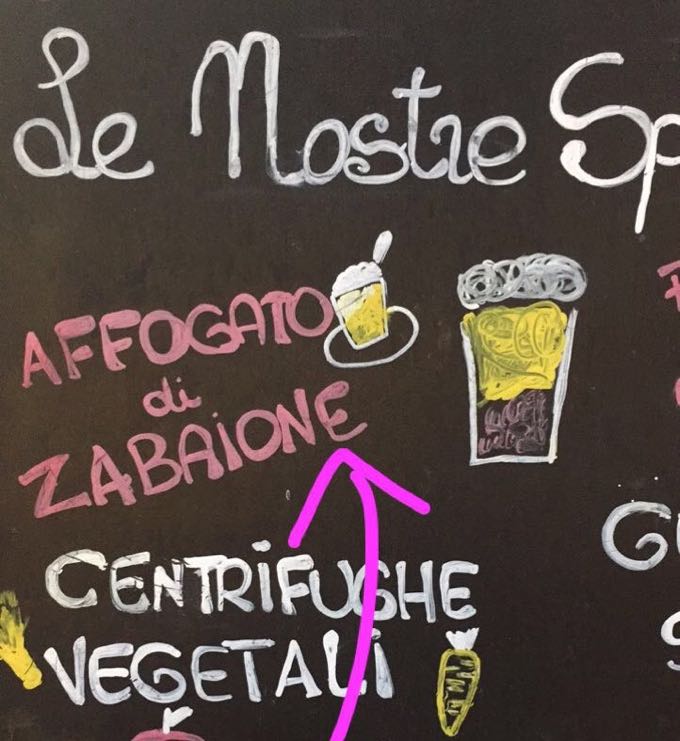 Le Nostre Sp
AFFOGATO
di
ZABAIONE
CENTRIFUGHE
VEGETALI